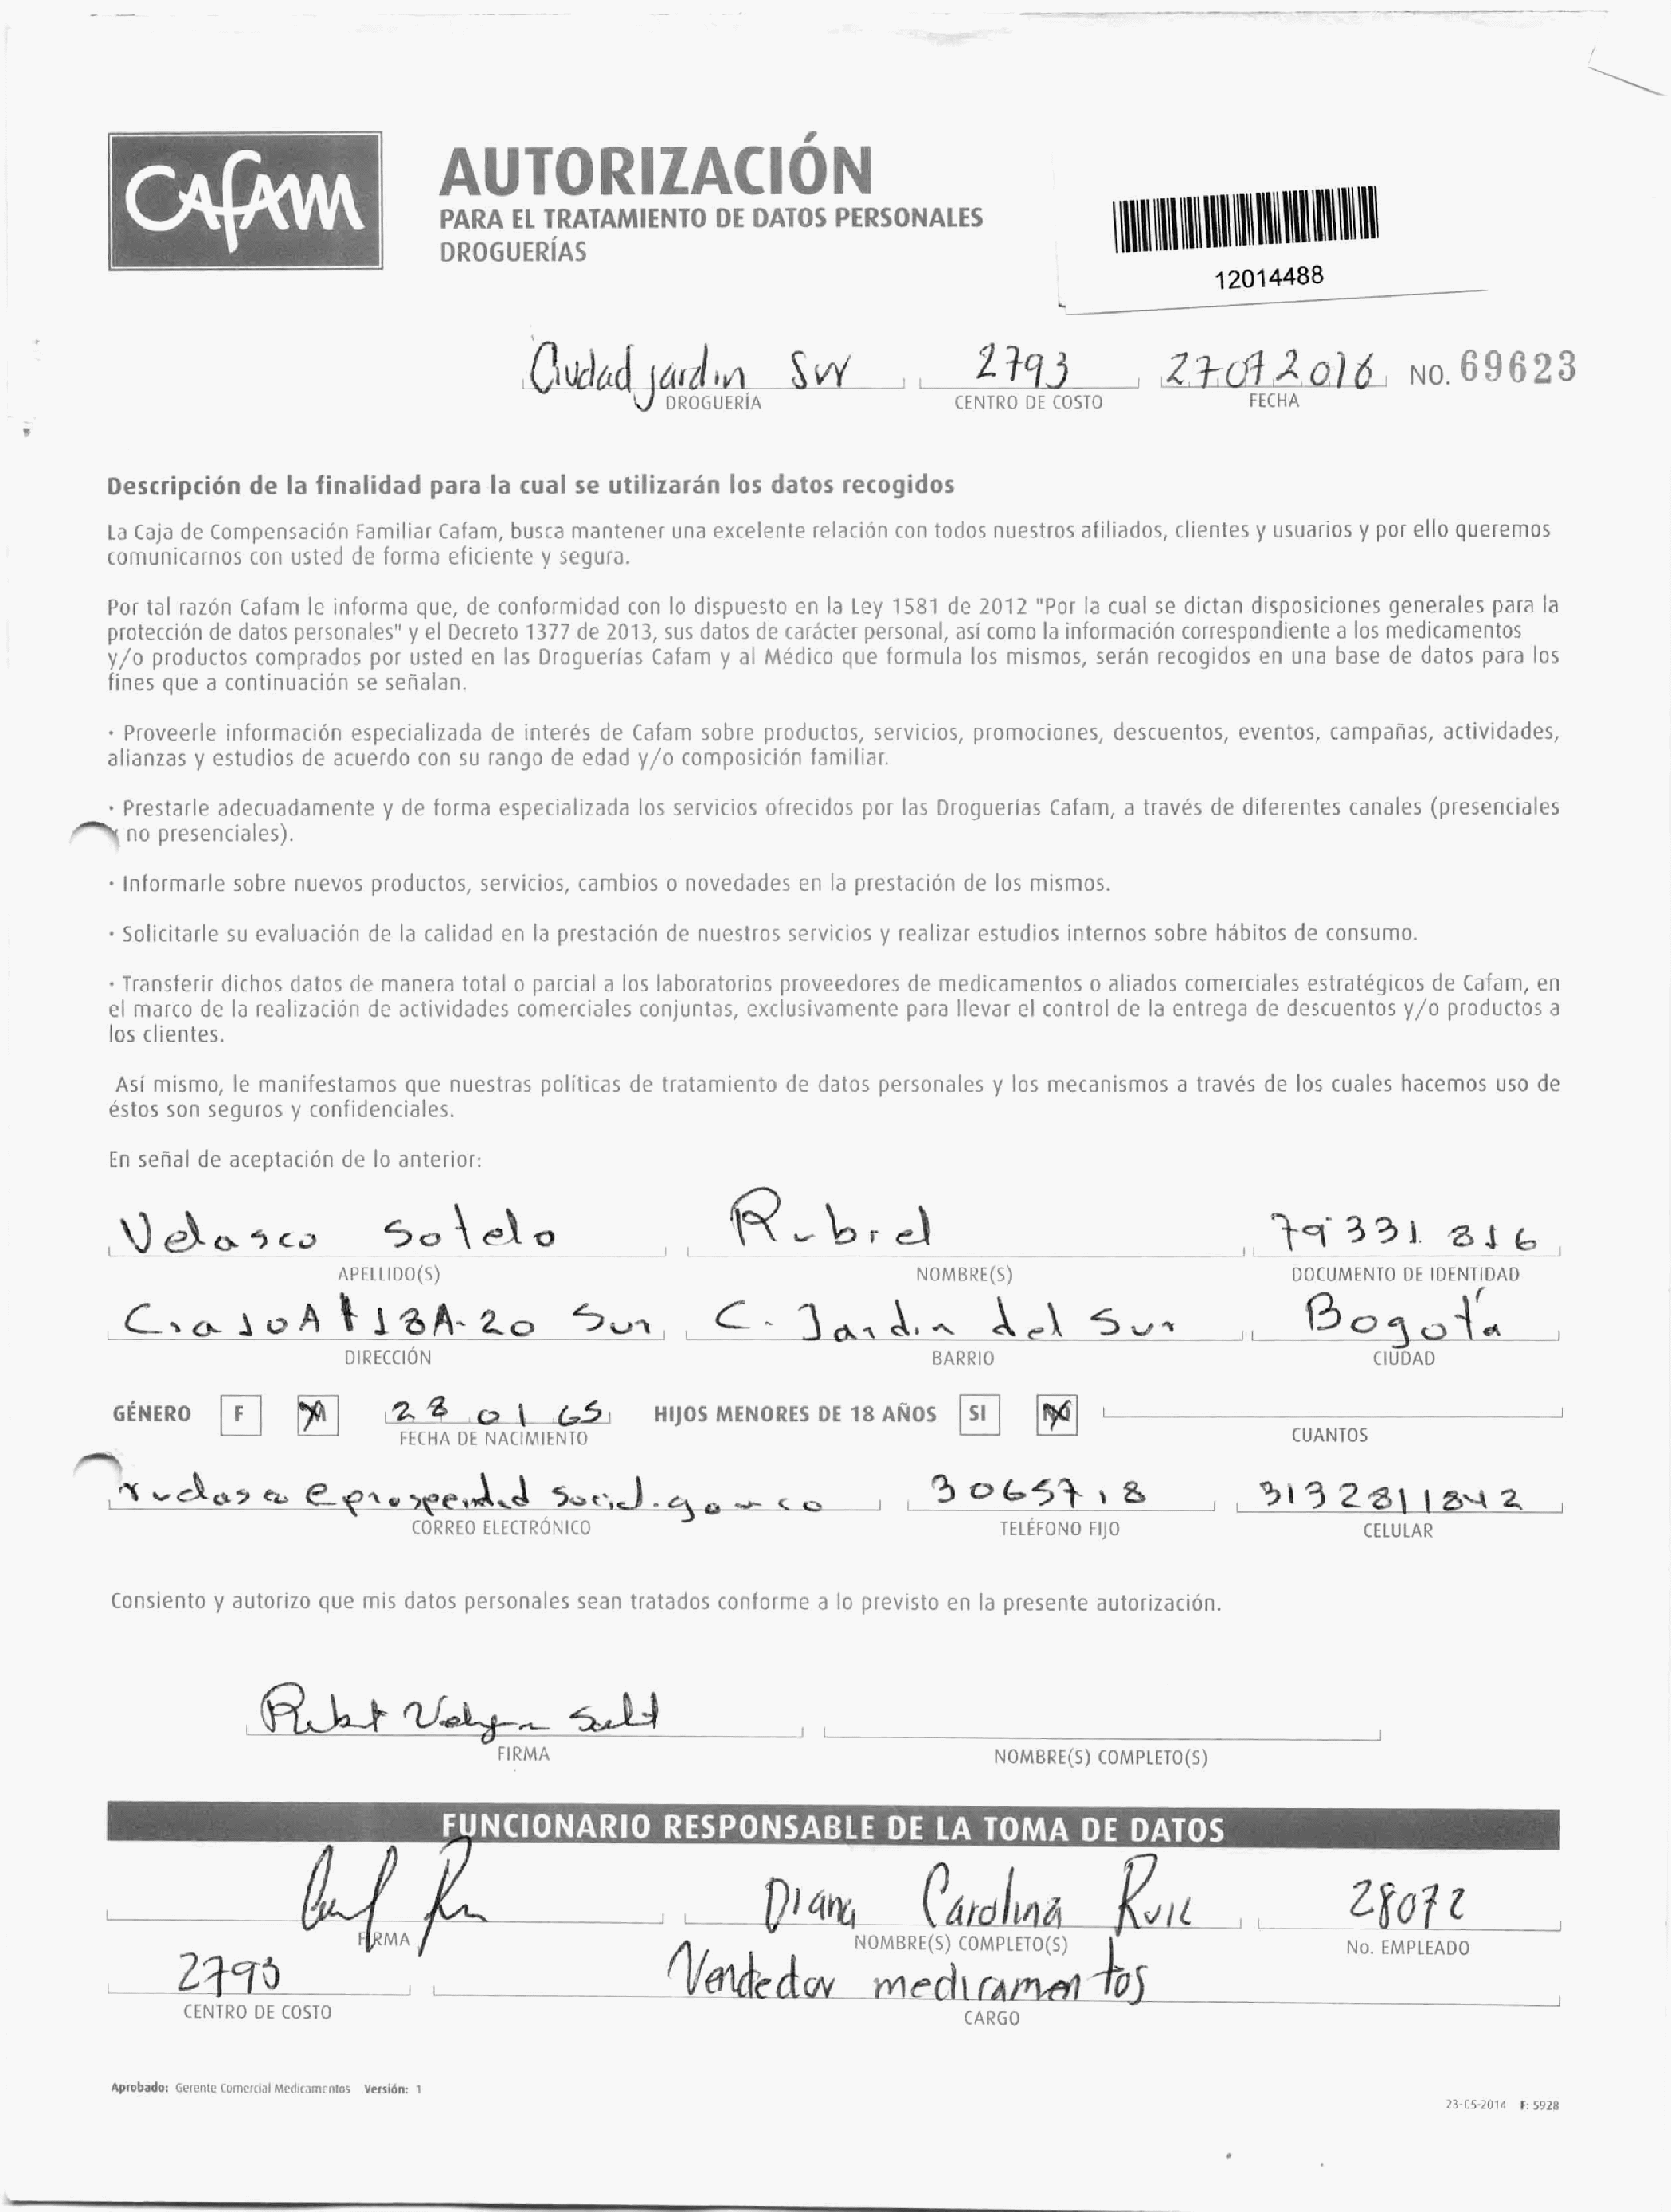 CAFAM
AUTORIZACIÓN
PARA EL TRATAMIENTO DE DATOS PERSONALES
DROGUERÍAS
12014488
Ciudad jardin Sur 2793 27072016 NO. 69623
DROGUERÍA CENTRO DE COSTO FECHA
Descripción de la finalidad para la cual se utilizarán los datos recogidos
La Caja de Compensación Familiar Cafam, busca mantener una excelente relación con todos nuestros afiliados, clientes y usuarios y por ello queremos
comunicarnos con usted de forma eficiente y segura.
Por tal razón Cafam le informa que, de conformidad con lo dispuesto en la Ley 1581 de 2012 "Por la cual se dictan disposiciones generales para la
protección de datos personales" y el Decreto 1377 de 2013, sus datos de carácter personal, así como la información correspondiente a los medicamentos
y/o productos comprados por usted en las Droguerías Cafam y al Médico que formula los mismos, serán recogidos en una base de datos para los
fines que a continuación se señalan.
· Proveerle información especializada de interés de Cafam sobre productos, servicios, promociones, descuentos, eventos, campañas, actividades,
alianzas y estudios de acuerdo con su rango de edad y/o composición familiar.
· Prestarle adecuadamente y de forma especializada los servicios ofrecidos por las Droguerías Cafam, a través de diferentes canales (presenciales
y no presenciales).
· Informarle sobre nuevos productos, servicios, cambios o novedades en la prestación de los mismos.
· Solicitarle su evaluación de la calidad en la prestación de nuestros servicios y realizar estudios internos sobre hábitos de consumo.
· Transferir dichos datos de manera total o parcial a los laboratorios proveedores de medicamentos o aliados comerciales estratégicos de Cafam, en
el marco de la realización de actividades comerciales conjuntas, exclusivamente para llevar el control de la entrega de descuentos y/o productos a
los clientes.
Así mismo, le manifestamos que nuestras políticas de tratamiento de datos personales y los mecanismos a través de los cuales hacemos uso de
éstos son seguros y confidenciales.
En señal de aceptación de lo anterior:
Velasco Sotelo Rubiel 79331816
APELLIDO(S) NOMBRE(S) DOCUMENTO DE IDENTIDAD
Cra 10A # 18A-20 Sur C. Jardin del Sur Bogotá
DIRECCIÓN BARRIO CIUDAD
GÉNERO F M 28 01 65 HIJOS MENORES DE 18 AÑOS SI NO
FECHA DE NACIMIENTO CUANTOS
3065718 3132811842
CORREO ELECTRÓNICO TELÉFONO FIJO CELULAR
Consiento y autorizo que mis datos personales sean tratados conforme a lo previsto en la presente autorización.
FIRMA NOMBRE(S) COMPLETO(S)
FUNCIONARIO RESPONSABLE DE LA TOMA DE DATOS
Diana Carolina Ruiz 28072
FIRMA NOMBRE(S) COMPLETO(S) No. EMPLEADO
2793 Vendedor medicamentos
CENTRO DE COSTO CARGO
Aprobado: Gerente Comercial Medicamentos Versión: 1
23-05-2014 F: 5928